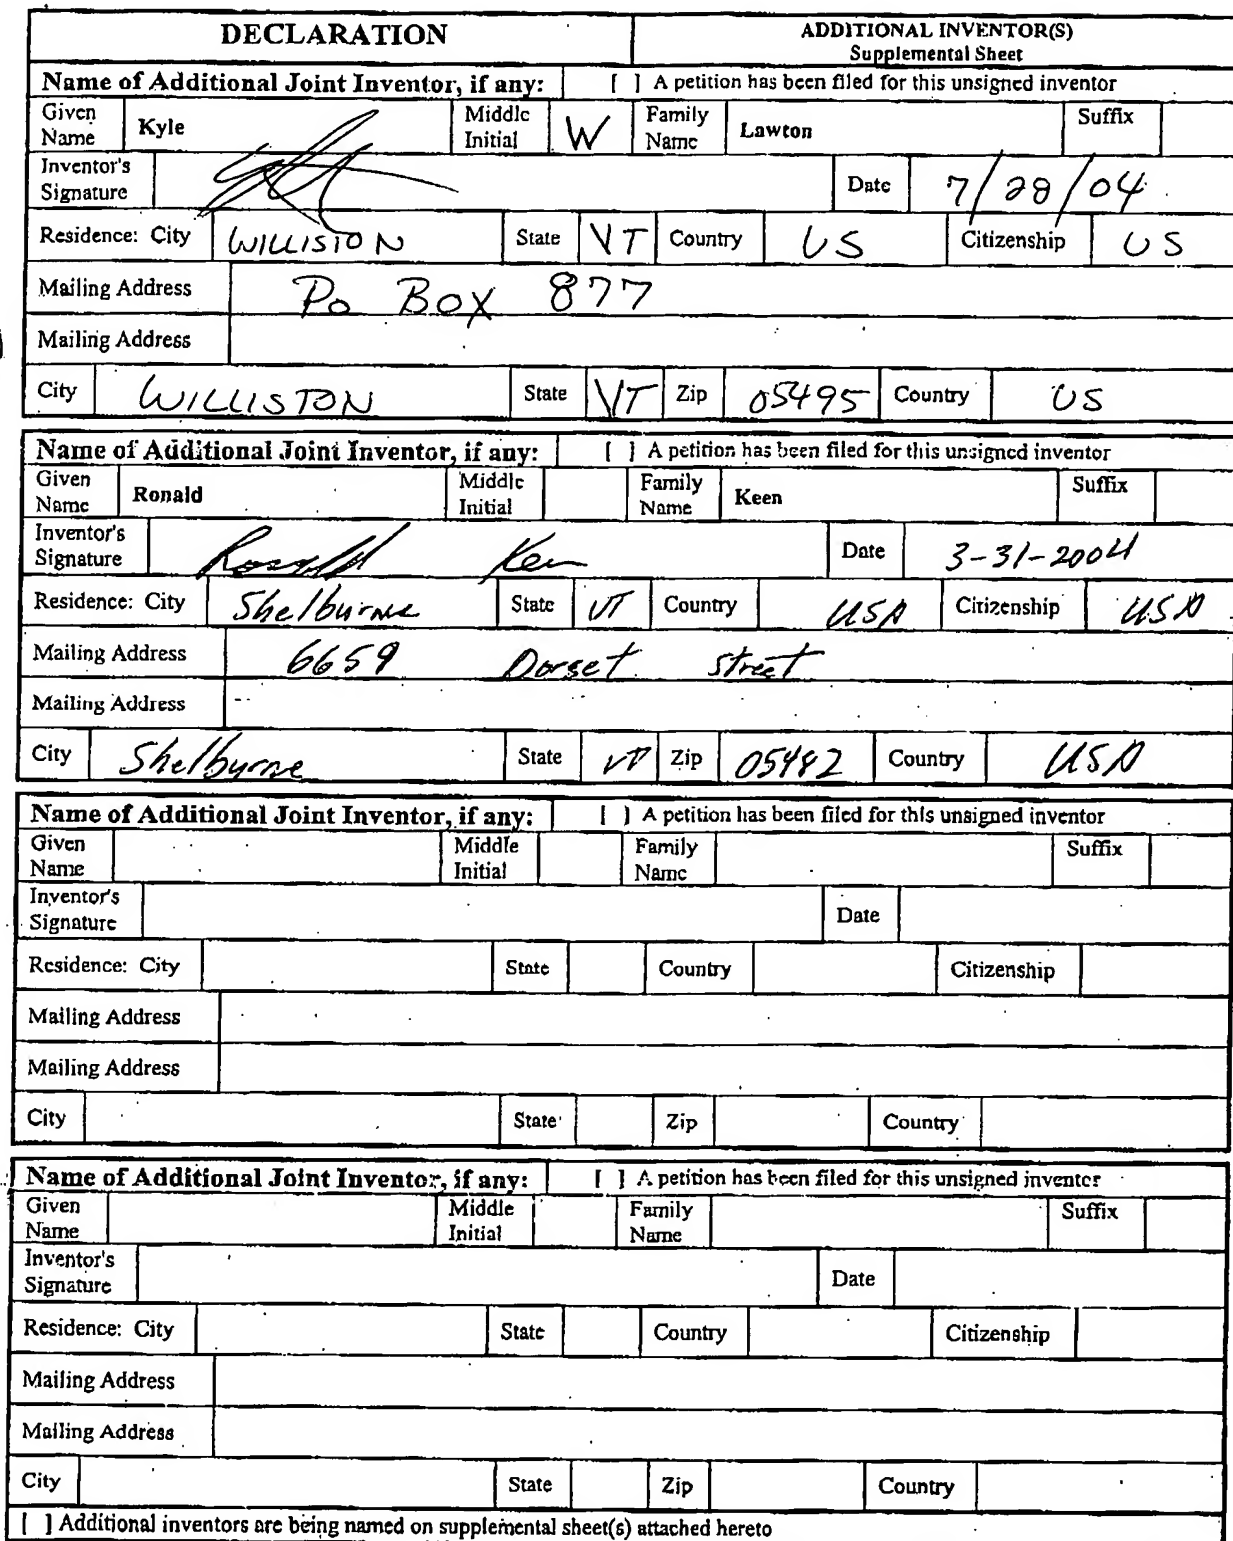 DECLARATION ADDITIONAL INVENTOR(S)
Supplemental Sheet
Name of Additional Joint Inventor, if any: [ ] A petition has been filed for this unsigned inventor
Given Name Kyle Middle Initial W Family Name Lawton Suffix
Inventor's Signature Date 7/28/04
Residence: City WILLISTON State VT Country US Citizenship US
Mailing Address Po Box 877
Mailing Address
City WILLISTON State VT Zip 05495 Country US
Name of Additional Joint Inventor, if any: [ ] A petition has been filed for this unsigned inventor
Given Name Ronald Middle Initial Family Name Keen Suffix
Inventor's Signature Ronald Keen Date 3-31-2004
Residence: City Shelburne State VT Country USA Citizenship USA
Mailing Address 6659 Dorset Street
Mailing Address
City Shelburne State VT Zip 05482 Country USA
Name of Additional Joint Inventor, if any: [ ] A petition has been filed for this unsigned inventor
Given Name Middle Initial Family Name Suffix
Inventor's Signature Date
Residence: City State Country Citizenship
Mailing Address
Mailing Address
City State Zip Country
Name of Additional Joint Inventor, if any: [ ] A petition has been filed for this unsigned inventor
Given Name Middle Initial Family Name Suffix
Inventor's Signature Date
Residence: City State Country Citizenship
Mailing Address
Mailing Address
City State Zip Country
[ ] Additional inventors are being named on supplemental sheet(s) attached hereto